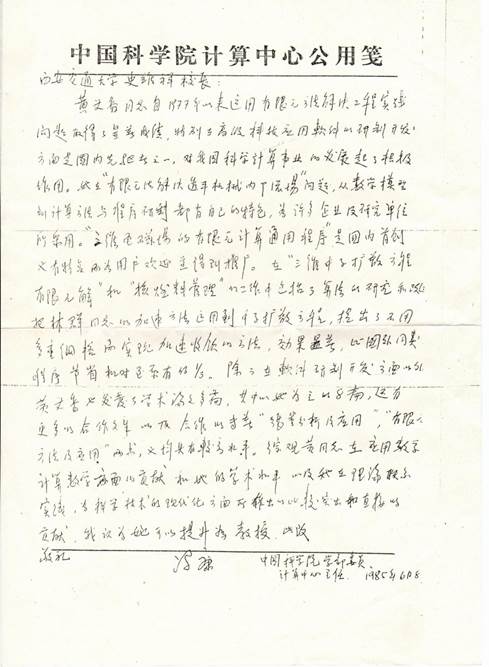 中国科学院计算中心公用笺
西安交通大学史维祥校长：
黄文香同志自1977年以来运用有限元方法解决工程实际
问题取得了显著成绩，特别在高级科技应用软件的研制开发
方面是国内先驱者之一，对我国科学计算事业的发展起了积极
作用。她在"有限元法解决透平机械内"流场"问题，从数学模型
到计算方法与程序研制都有自己的特色，为许多企业及研究单位
所采用。"三维电磁场的有限元计算通用程序"是国内首创
又有特色而为用户欢迎并得到推广。在"三维中子扩散方程
有限元解"和"核燃料管理"的工作中包括了算法的研究和改进
把林群同志的加速方法运用到中子扩散方程，提出了不同
多重网格而实现加速收敛的方法，效果显著，比国外同类
程序节省机时
除了在软件研制开发方面以外
黄文香也发表了学术论文多篇，其中以她为主的8篇，还有
更多的合作文章以及合作的专著"误差分析及应用"，"有限元
方法及应用"两书，又均具有较高水平。综观黄同志在应用数学
计算数学方面的贡献和她的学术水平以及她在理论联系
实践，为科学技术的现代化方面所作出的比较突出和直接的
贡献，我认为她可以提升为教授。此致
敬礼
冯康
中国科学院学部委员
计算中心主任 1985年6月8